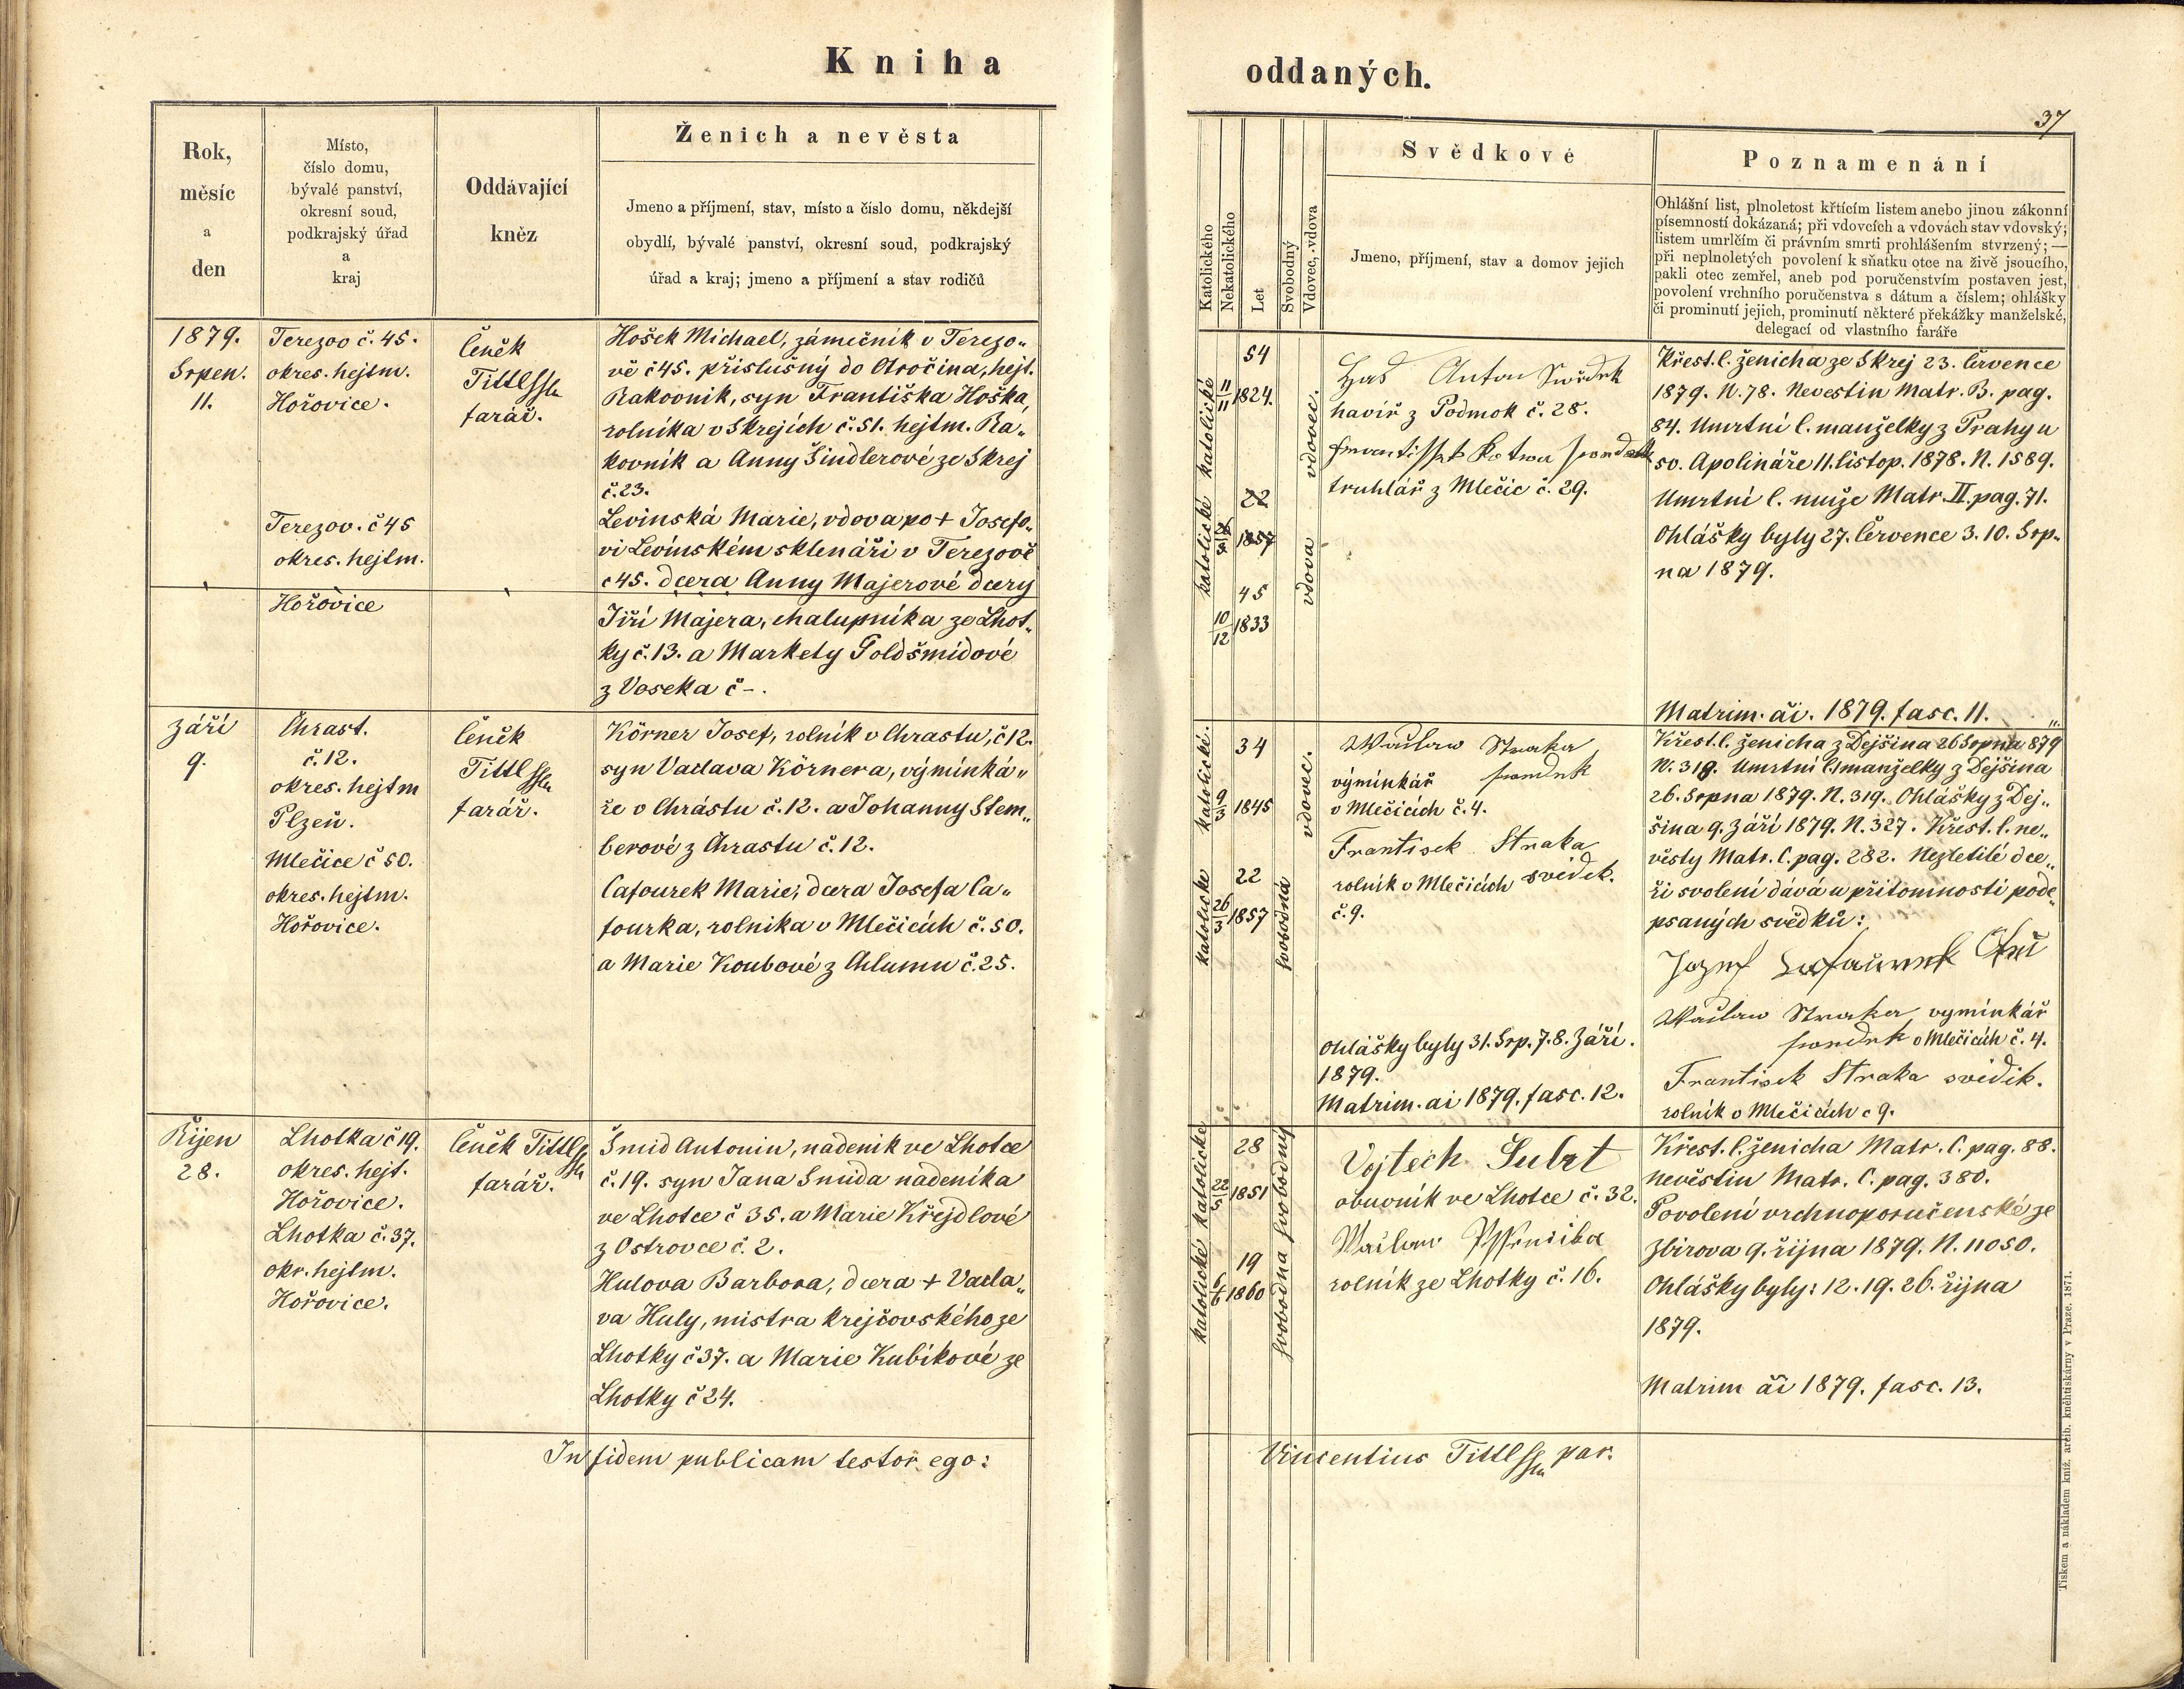 Kniha
oddaných.
37
Rok,
měsíc
a
den
Místo,
číslo domu,
bývalé panství,
okresní soud,
podkrajský úřad
a
kraj
Oddávající
kněz
Ženich a nevěsta
Jmeno a příjmení, stav, místo a číslo domu, někdejší
obydlí, bývalé panství, okresní soud, podkrajský
úřad a kraj; jmeno a příjmení a stav rodičů
Katolického
Nekatolického
Let
Svobodný
Vdovec, vdova
Svědkové
Jmeno, příjmení, stav a domov jejich
Poznamenání
Ohlášní list, plnoletost křtícím listem anebo jinou zákonní
písemností dokázaná; při vdovcích a vdovách stav vdovský;
listem umrlčím či právním smrti prohlášením stvrzený; —
při neplnoletých povolení k sňatku otce na živě jsoucího,
pakli otec zemřel, aneb pod poručenstvím postaven jest,
povolení vrchního poručenstva s dátum a číslem; ohlášky
či prominutí jejich, prominutí některé překážky manželské,
delegací od vlastního faráře
1879.
Srpen.
11.
Terezov č. 45.
okres. hejtm.
Hořovice.
Terezov. č 45
okres. hejtm.
Hořovice
Čeněk
Tittl
farář.
Hošek Michael, zámečník v Terezo„
vě č 45. příslušný do Otročina, hejt.
Rakovník, syn Františka Hoška,
rolníka v Skrejích č. 51. hejtm. Ra„
kovník a Anny Šindlerové ze Skrej
č. 23.
Levinská Marie, vdova po + Josefo„
vi Levínském sklenáři v Terezově
č 45. dcera Anny Majerové dcery
Jiří Majera, chalupníka ze Lhot„
ky č. 13. a Markety Goldšmidové
z Voseka č -.
katolické
katolické
54
11
11
1824.
22
1857
45
10
12
1833
vdovec.
vdova
Anton
havíř z Podmok č. 28.
truhlář z Mlečic č. 29.
Křest. l. ženicha ze Skrej 23. Července
1879. N. 78. Nevestin Matr. B. pag.
84. Umrtní l. manželky z Prahy u
sv. Apolináře 11. listop. 1878. N. 1589.
Umrtní l. muže Matr. II. pag. 71.
Ohlášky byly 27. Července 3. 10. Srp„
na 1879.
Matrim. ai. 1879. fasc. 11.
Září
9.
Chrast.
č. 12.
okres. hejtm
Plzeň.
Mlečice č 50.
okres. hejtm.
Hořovice.
Čeněk
Tittl
farář.
Körner Josef, rolník v Chrastu, č 12.
syn Vaclava Körnera, výminká„
ře v Chrástu č. 12. a Johanny Stem„
berové z Chrastu č. 12.
Cafourek Marie, dcera Josefa Ca„
fourka, rolníka v Mlečicích č. 50.
a Marie Koubové z Chlumu č. 25.
katolické.
katolické
34
9
3
1845
22
26
3
1857
vdovec.
svobodná
Wáclaw Straka
výminkář
v Mlečicích č. 4.
Frantisek Straka
rolník v Mlečicích svědek.
č. 9.
Ohlášky byly 31. Srp. 7. 8. Září.
1879.
Matrim. ai 1879. fasc. 12.
Křest. l. ženicha z Dejšina 26 Srpna 879
N. 319. Umrtní l. manželky z Dejšina
26. Srpna 1879. N. 319. Ohlášky z Dej„
šina 9. Září 1879. N. 327. Křest. l. ne„
věsty Matr. C. pag. 282. Nezletilé dce„
ři svolení dává u přítomnosti pode„
psaných svědků:
Wáclaw Straka vyminkář
v Mlečicích č. 4.
Frantisek Straka svědik.
rolník v Mlečicích c 9.
Říjen
28.
Lhotka č 19.
okres. hejt.
Hořovice.
Lhotka č. 37.
okr. hejtm.
Hořovice.
Čeněk Tittl
farář.
Šmid Antonin, nadeník ve Lhotce
č. 19. syn Jana Šmida nadeníka
ve Lhotce č 35. a Marie Křejdlové
z Ostrovce č. 2.
Hulova Barbora, dcera + Vacla„
va Huly, mistra krejčovského ze
Lhotky č 37. a Marie Kubíkové ze
Lhotky č 24.
katolické
katolické
28
22
5
1851
19
6
6
1860
svobodný
svobodna
Vojtech Subrt
obuvník ve Lhotce č. 32.
Wáclaw
rolník ze Lhotky č. 16.
Křest. l. ženicha Matr. C. pag. 88.
nevěstin Matr. C. pag. 380.
Povolení vrchnoporučenské ze
Zbirova 9. října 1879. N. 11050.
Ohlášky byly: 12. 19. 26. října
1879.
Matrim ai 1879. fasc. 13.
In fidem publicam testor ego:
Vincentius Tittl par.
Tiskem a nákladem kníž. arcib. kněhtiskárny v Praze. 1871.